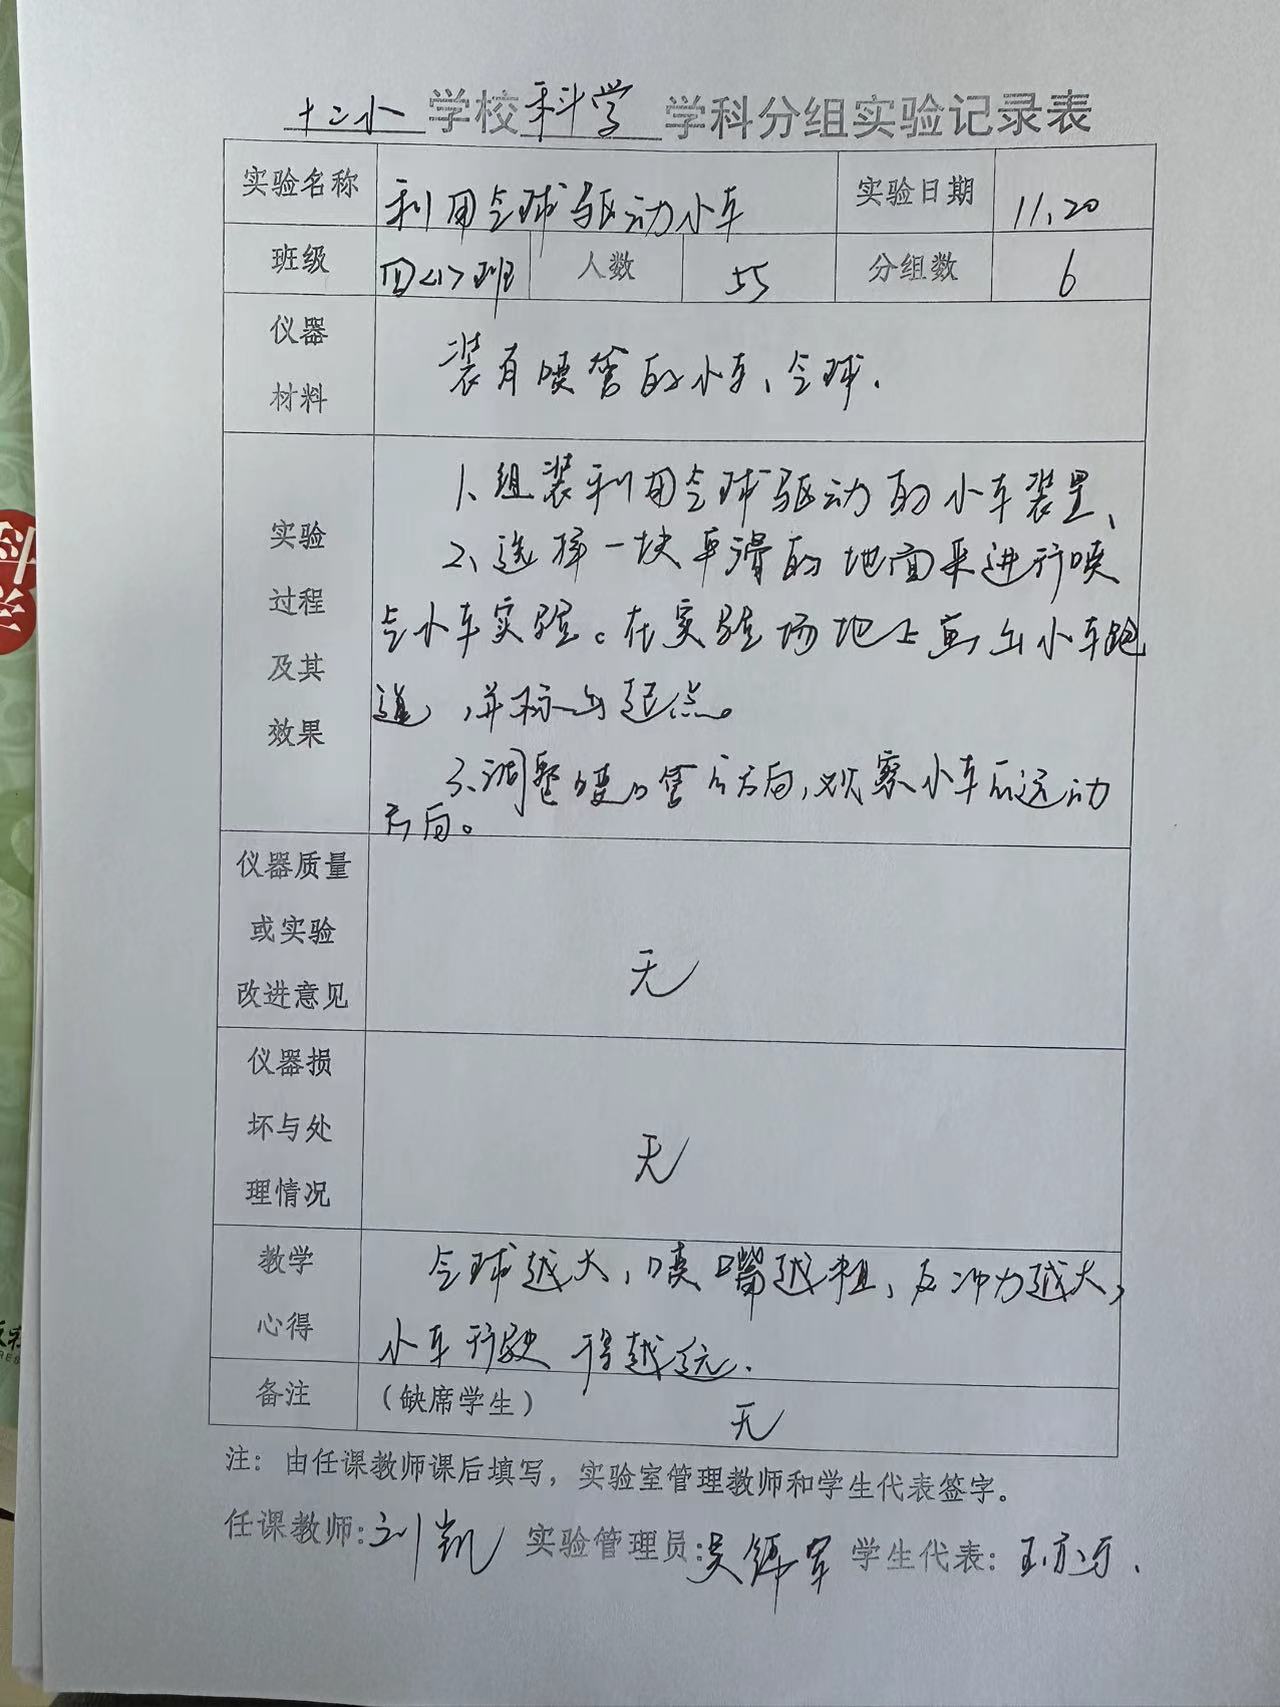 十二小 学校 科学 学科分组实验记录表
实验名称 利用气球驱动小车 实验日期 11.20
班级 四<1>班 人数 55 分组数 6
仪器
材料
装有喷管的小车、气球.
实验
过程
及其
效果
1、组装利用气球驱动的小车装置、
2、选择一块平滑的地面来进行喷
气小车实验。在实验场地上画出小车跑
道,并标出起点。
3、调整喷口管口方向,观察小车后运动
方向。
仪器质量
或实验
改进意见
无
仪器损
坏与处
理情况
无
教学
心得
气球越大,喷嘴越粗,反冲力越大,
小车行驶得越远.
备注 (缺席学生) 无
注: 由任课教师课后填写,实验室管理教师和学生代表签字。
任课教师: 刘凯 实验管理员: 吴 军 学生代表: 王